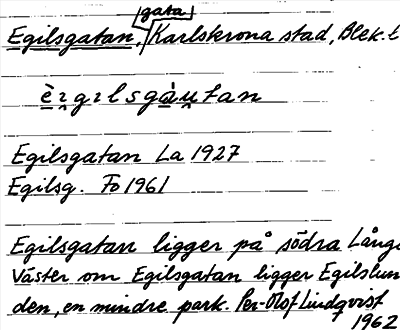 gata
Egilsgatan, Karlskrona stad, Blek. l
Egilsgatan La 1927
Egilsg. Fo 1961
Egilsgatan ligger på södra Lång
Väster om Egilsgatan ligger Egilslun
den, en mindre park. Per-Olof Lindqvist
1962